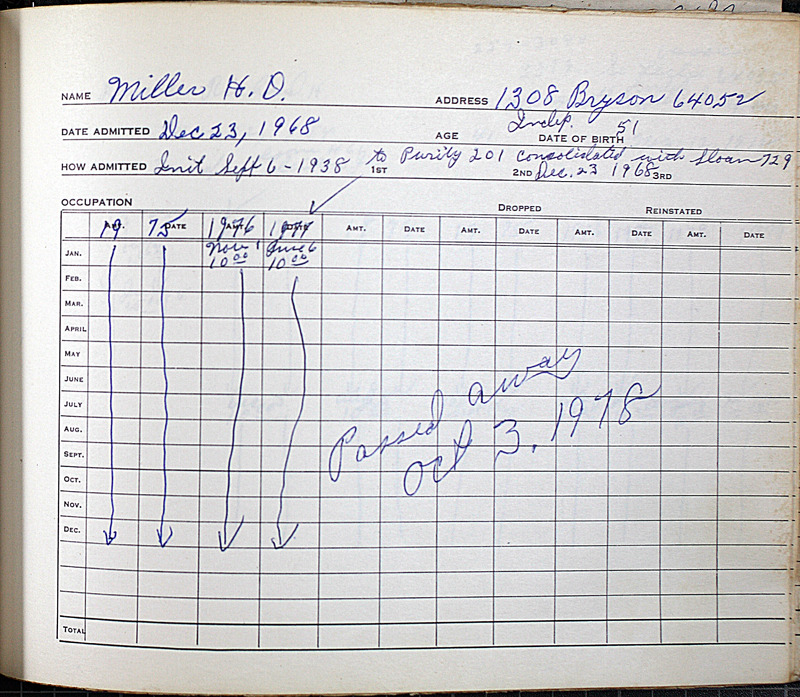 NAME Miller H. O. ADDRESS 1308 Bryson 64052
Indep. 51
DATE ADMITTED Dec 23, 1968 AGE DATE OF BIRTH
HOW ADMITTED Init Sept 6-1938 to Purity 201 consolidated with Sloan 729
1ST 2ND Dec. 23 1968 3RD
OCCUPATION DROPPED REINSTATED
19 75 DATE 1976 1977 AMT. DATE AMT. DATE AMT. DATE AMT. DATE
JAN. Nov 1 June 6
10 00 10 00
FEB.
MAR.
APRIL
MAY
JUNE
JULY
AUG.
SEPT.
OCT.
NOV.
DEC.
TOTAL
Passed away
Oct 3, 1978